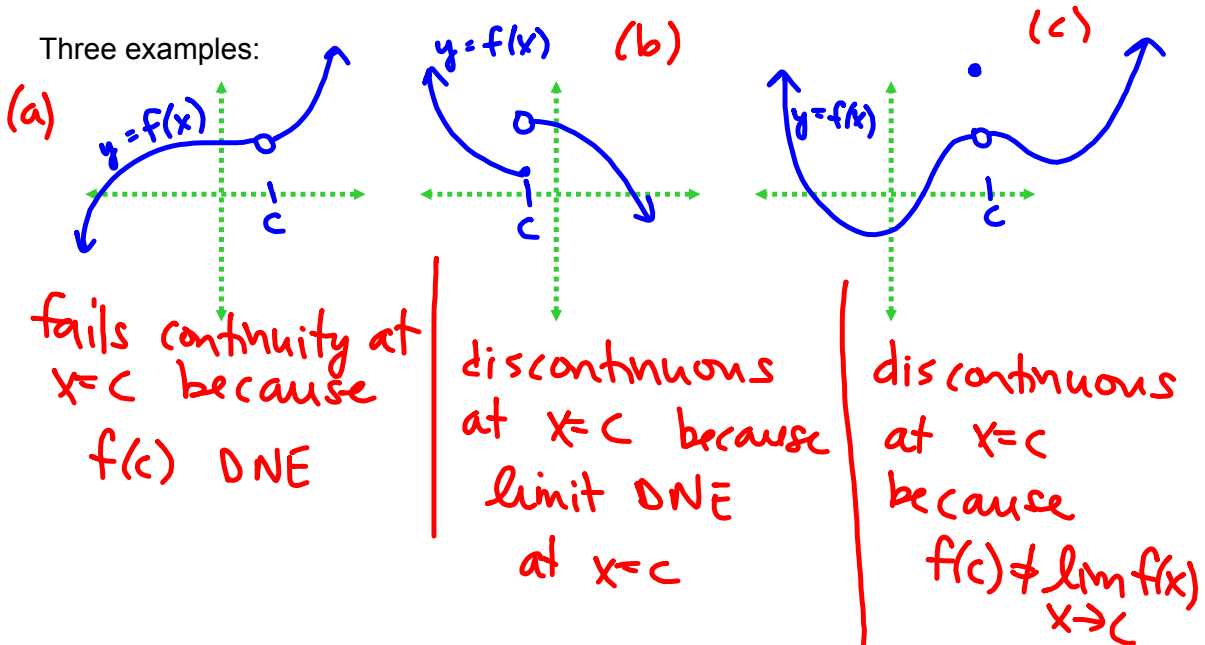 Three examples:
(a)
y=f(x)
c
fails continuity at
x=c because
f(c) DNE
(b)
y=f(x)
c
discontinuous
at x=c because
limit DNE
at x=c
(c)
y=f(x)
c
discontinuous
at x=c
because
f(c)≠lim f(x)
x→c